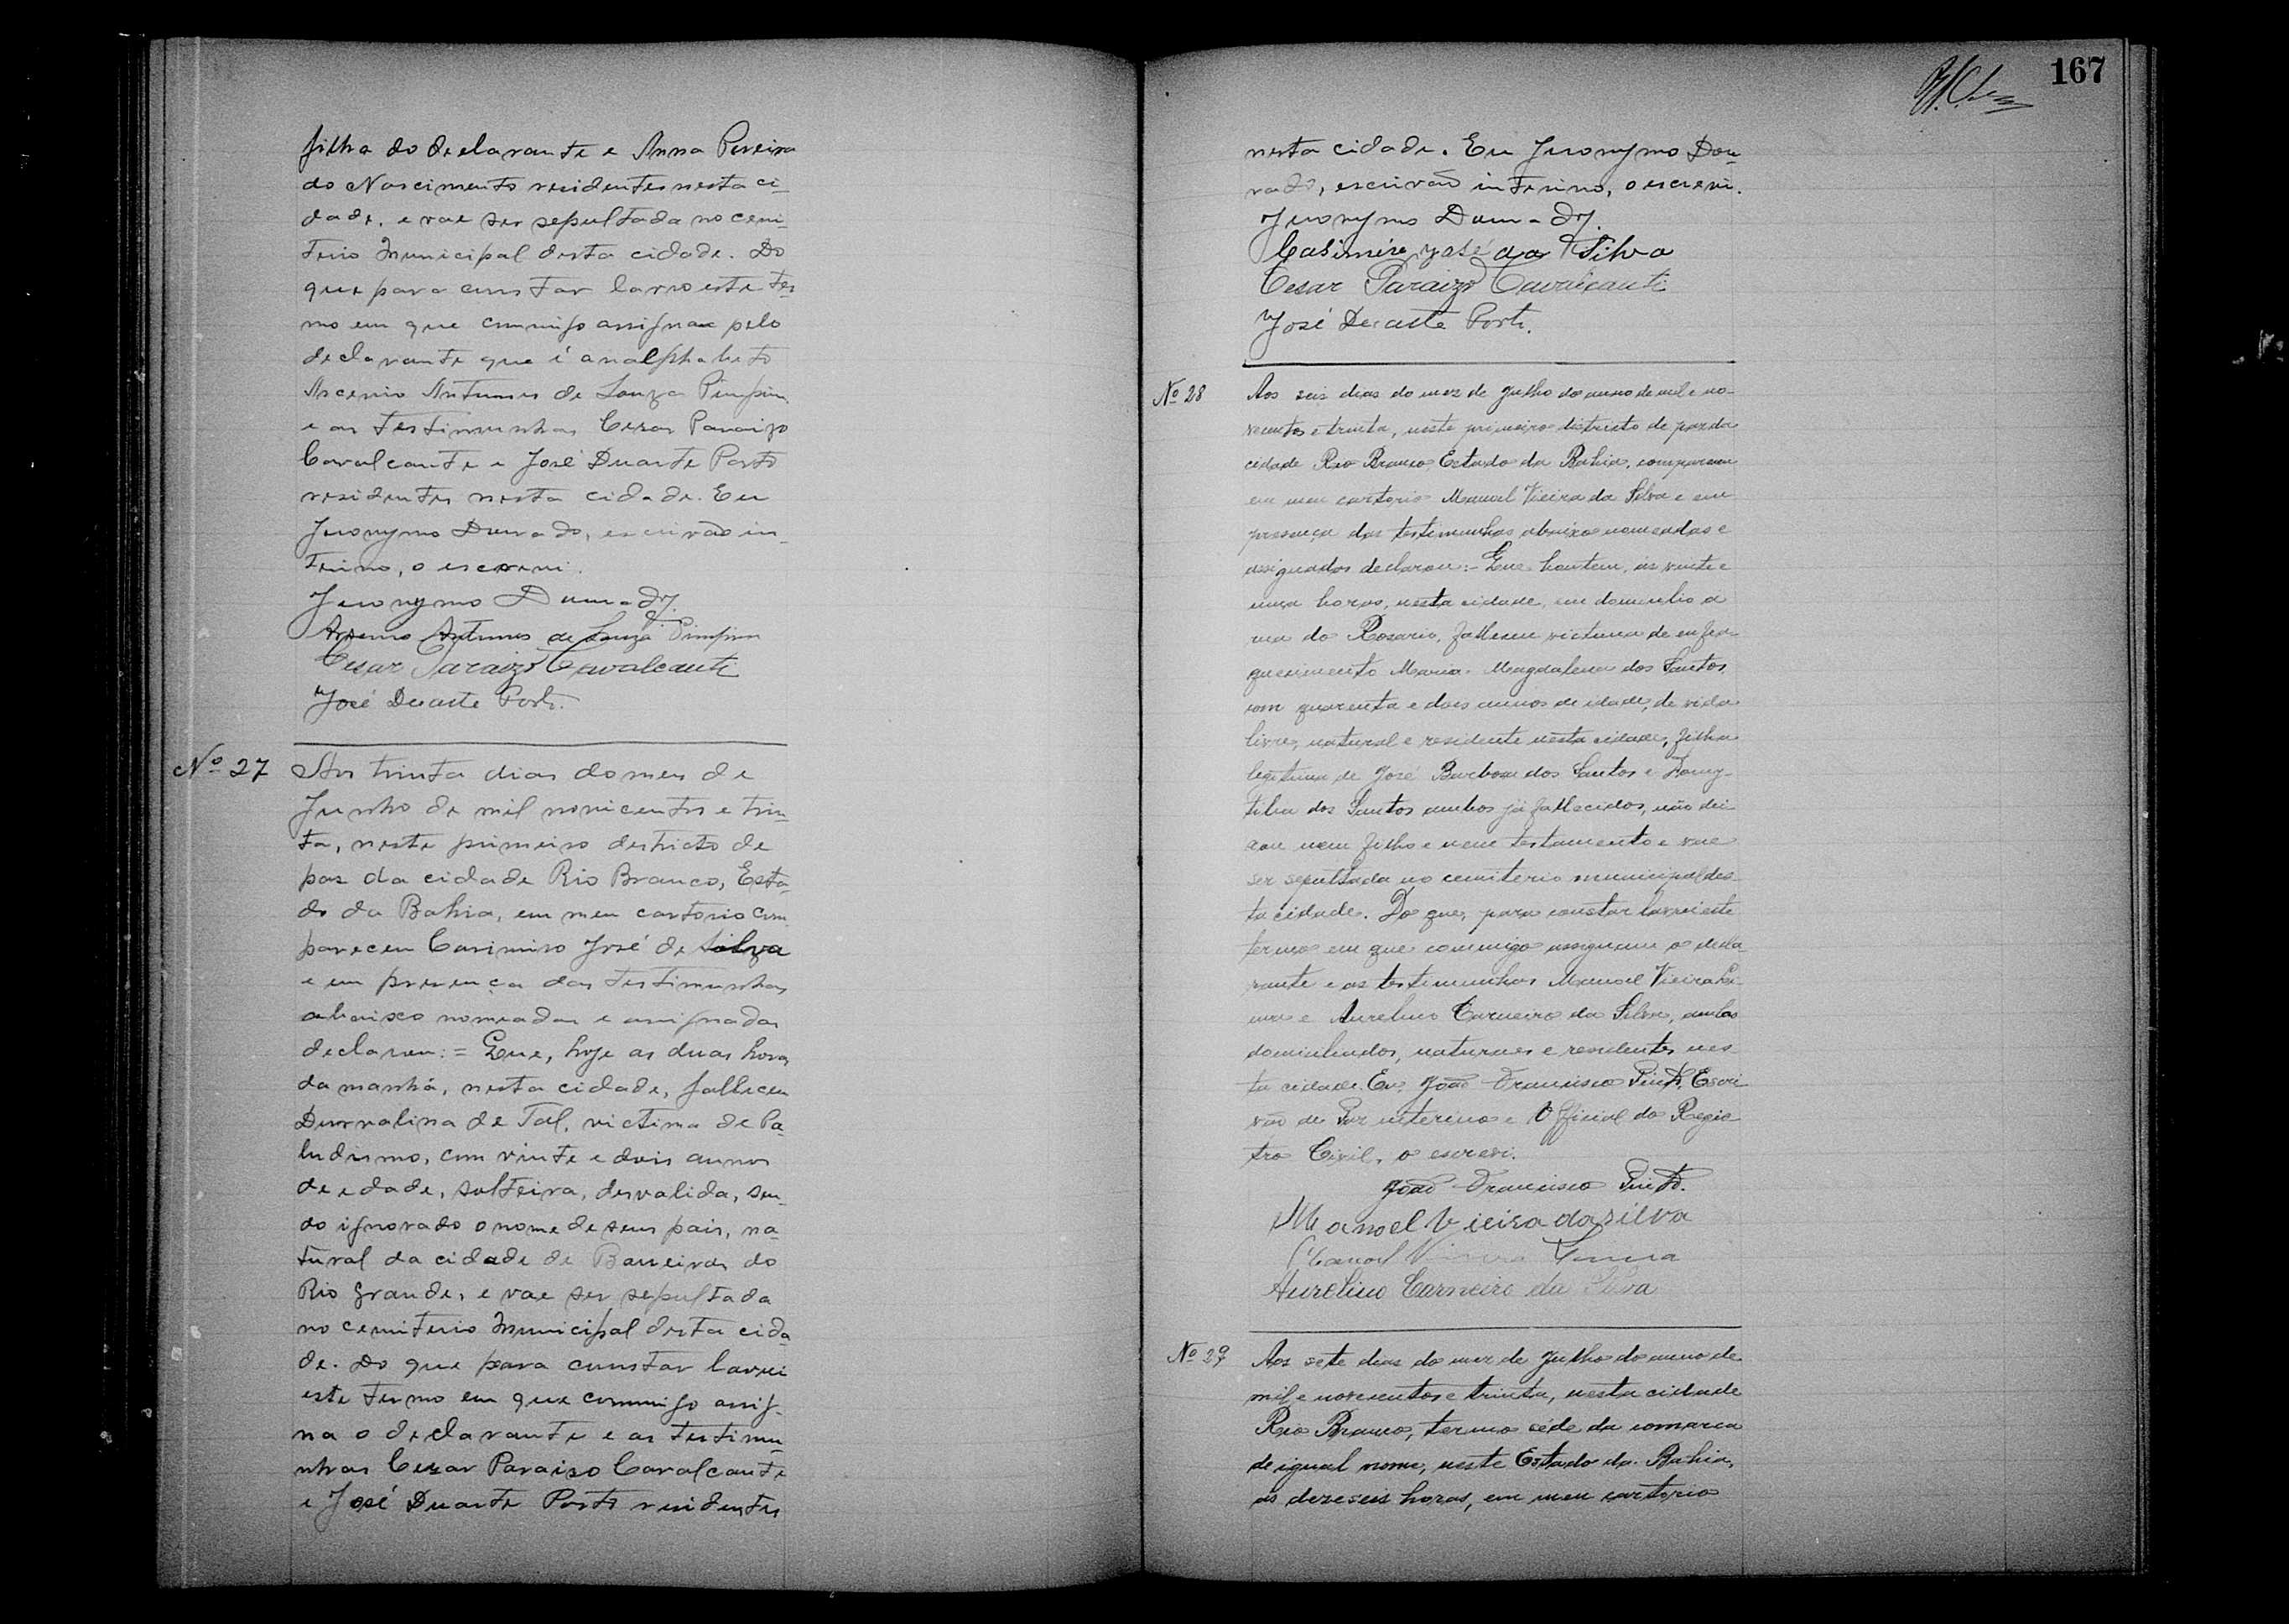 filha do declarante e Anna Pereira
do Nascimento residentes nesta ci-
dade, e vae ser sepultada no cemi-
terio Municipal desta cidade. Do
que para constar lavro este ter-
mo em que commigo assigna pelo
declarante que é analphabeto
Antunes de Souza Pimpim
e as testimunhas Cezar Paraizo
Cavalcante e José Duarte Porto
residentes nesta cidade. Eu
Jeronymo Dourado, escrivão in-
terino, o escrevi.
Jeronymo Dourado
Antunes de Souza Pimpim
Cesar Paraizo Cavalcanti
José Duarte Porto.
Nº 27 Aos trinta dias do mez de
Junho de mil novicentos e trin-
ta, neste primeiro destricto de
paz da cidade Rio Branco, Esta-
do da Bahia, em meu cartorio com
pareceu Casimiro José de Silva
e em presença das testimunhas
abaixo nomeadas e assignadas
declarou: = Que, hoje as duas horas
da manhã, nesta cidade, falleceu
Durvalina de Tal, victima de Pa-
ludismo, com vinte e dois annos
de edade, solteira, desvalida, sen-
do ignorado o nome de seus pais, na-
tural da cidade de Barreiras do
Rio Grande, e vae ser sepultada
no cemiterio Municipal desta cida
de. Do que para constar lavrei
este termo em que commigo assig-
na o declarante e as testimu-
nhas Cezar Paraiso Cavalcante
e José Duarte Porto residentes
167
nesta cidade. Eu Jeronymo Dou-
rado, escrivão interino, o escrevi.
Jeronymo Dourado
Casimiro José da Silva
Cesar Paraizo Cavalcanti
José Duarte Porto.
Nº 28 Aos seis dias do mez de Julho do anno de mil e no-
vecentos e trinta, neste primeiro districto de paz da
cidade Rio Branco, Estado da Bahia, compareceu
em meu cartorio Manoel Vieira da Silva e em
presença das testemunhas abaixo nomeadas e
assignadas declarou: - Que hontem, ás vinte e
uma horas, nesta cidade, em domicilio a
rua do Rosario, falleceu victima de enfra-
quecimento Maria Magdalena dos Santos,
com quarenta e dois annos de idade, de vida
livre, natural e residente nesta cidade, filha
legitima de José Barbosa dos Santos e
dos Santos ambos já fallecidos, não dei-
xou nem filho e nem testamento e vae
ser sepultada no cemiterio municipal des-
ta cidade. Do que, para constar lavrei este
termo em que commigo assignam o decla-
rante e as testemunhas Manoel Vieira
e Aurelino Carneiro da Silva, ambos
domiciliados, naturaes e residentes nes-
ta cidade. Eu, João Francisco Pinto, Escri
vão de Paz interino e Official do Regis-
tro Civil, o escrevi.
João Francisco Pinto.
Manoel Vieira da silva
Manoel Vieira
Aurelino Carneiro da Silva
Nº 29 Aos sete dias do mez de Julho do anno de
mil e novecentos e trinta, nesta cidade
Rio Branco, termo séde da comarca
de igual nome, neste Estado da Bahia,
as dezeseis horas, em meu cartorio